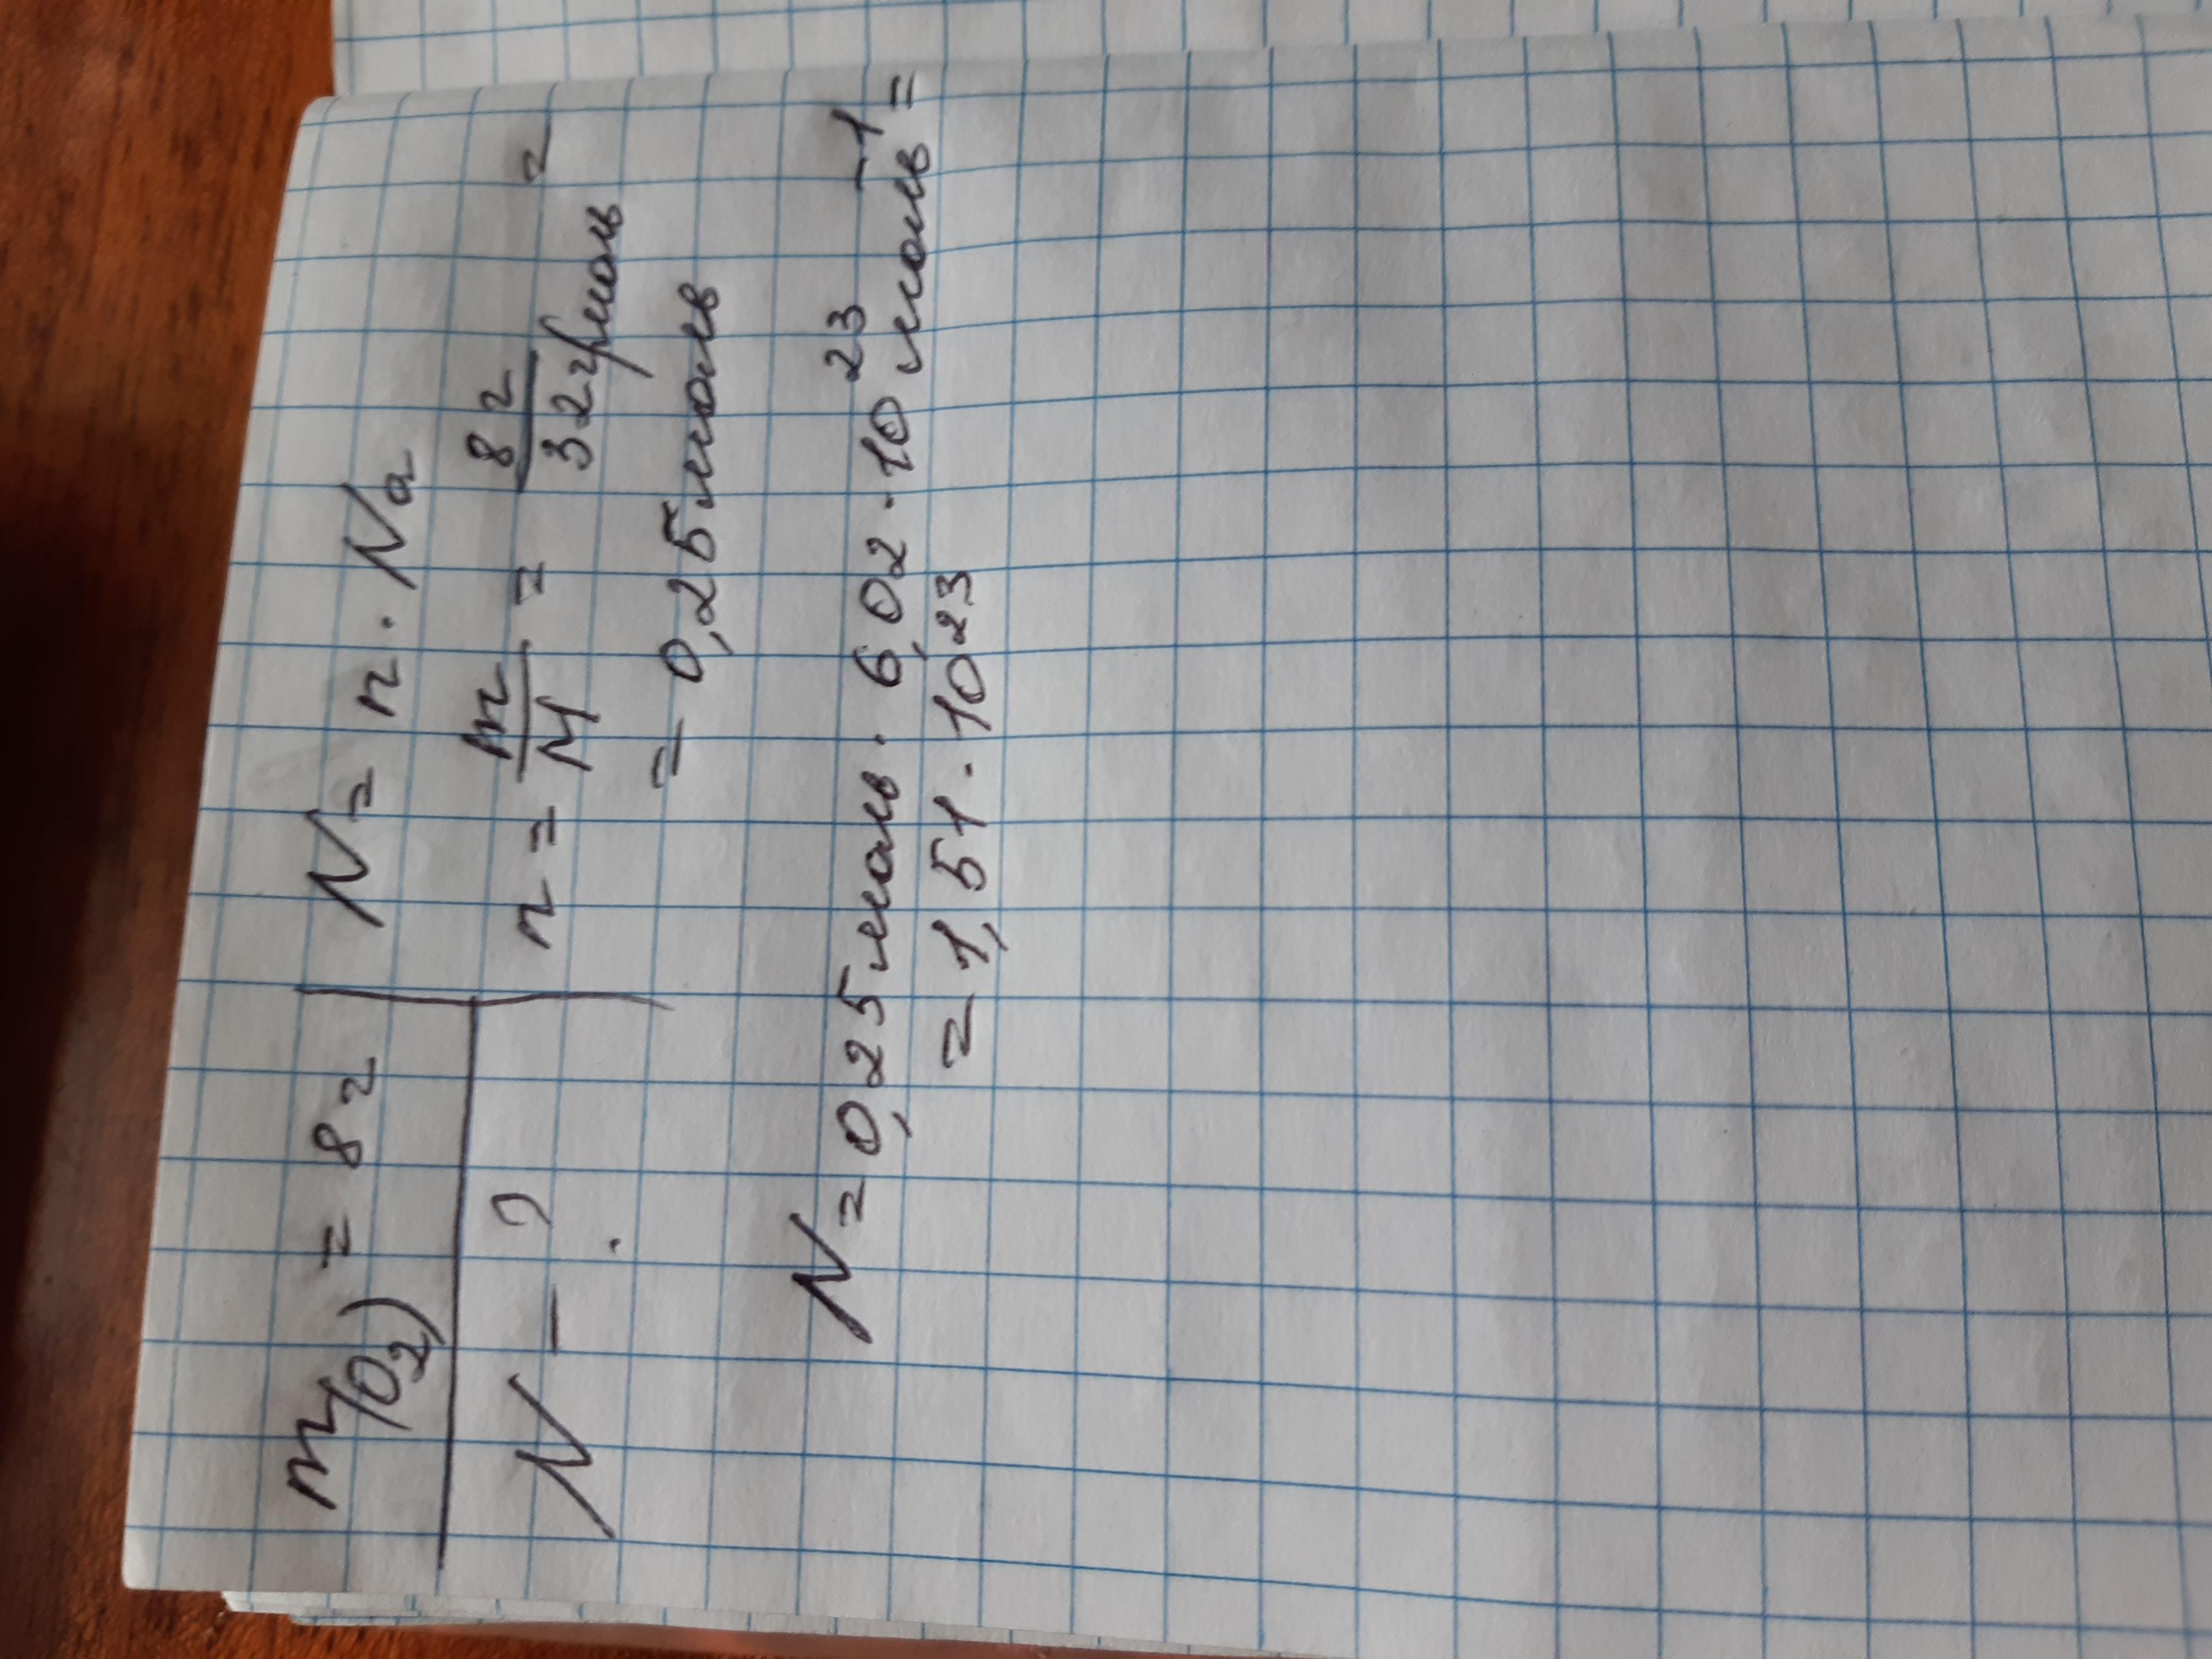 m(O₂) = 8 г
N - ?
N = n · Na
n = m/M = 8 г / 32 г/моль =
= 0,25 моль
N = 0,25 моль · 6,02 · 10²³ моль⁻¹ =
= 1,51 · 10²³